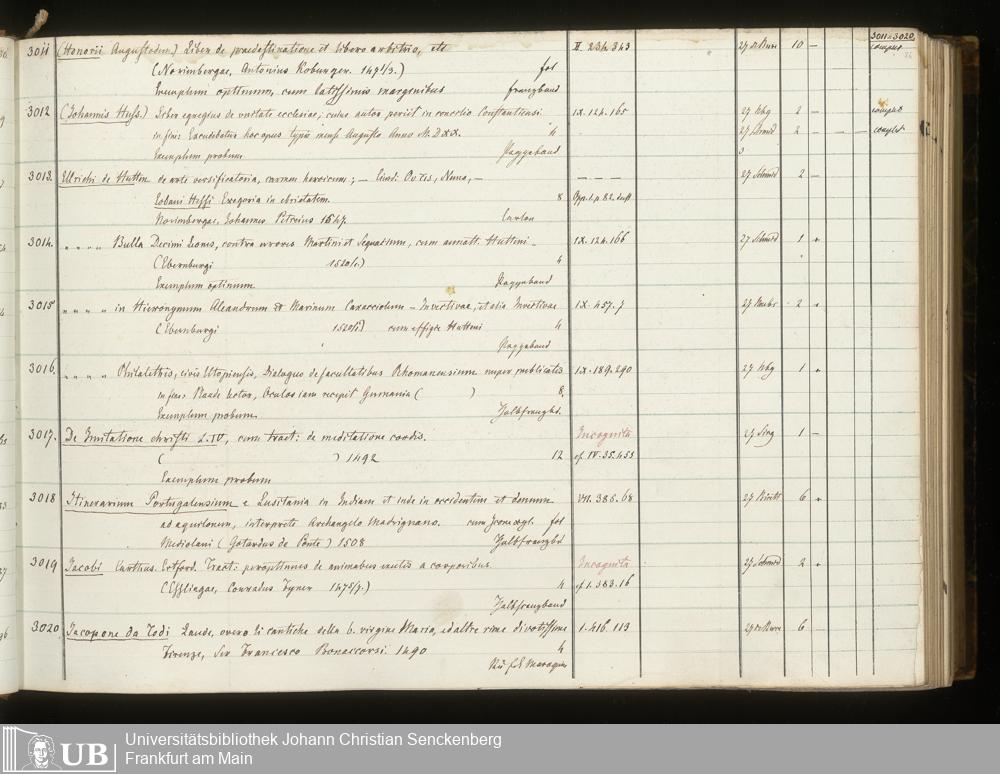 3011-3020.
3011 (Honorii Augustodun.) Liber de praedestinatione et libero arbitrio, etc II. 234. 343 10 — complet
(Norimbergae, Antonius Koburger. 1471/3.) fol
Exemplum optimum, cum latissimis marginibus franzband
3012 (Johannis Huss.) Liber egregius de unitate ecclesiae, cuius autor periit in concilio Constantiensi IX. 124. 165 27 2 — complet
in fine: Excudebatur hoc opus typis mense Augusto Anno M.D.XX. 4 27 2 — — — complet
Exemplum probum Pappband 3
3013. Ulrichi de Hutten de arte versificatoria, carmen heroicum; — Eiusd: Outis, Nemo, — — — — 27 Schmid 2 —
Eobani Hessi Exegoria in ebrietatem. 8 Opp. I. p. 82.
Norimbergae, Johannes Petreius 1547. Carton
3014. „ „ „ „ Bulla Decimi Leonis, contra errores Martini et Sequacium, cum annott. Hutteni — IX. 124. 166 27 Schmid 1 „
(Ebernburgi 1520/1.) 4
Exemplum optimum Pappband
3015 „ „ „ „ in Hieronymum Aleandrum & Marinum Caracciolum — Invectivae, et alia Invectivae IX. 457. 7 27 2 „
(Ebernburgi 1520/1) cum effigie Hutteni 4
Pappband
3016. „ „ „ „ Philalethis, civis Utopiensis, Dialogus de facultatibus Rhomanensium nuper publicatis IX. 189. 290 27 1 „
in fine: Raade Lector, Oculos iam recepit Germania ( ) 8.
Exemplum probum. Halbfranzbd.
3017. De Imitatione christi L. IV, cum tract: de meditatione cordis. Incognita 27 1 —
( ) 1492 12 cf. IV. 35. 453
Exemplum probum
3018 Itinerarium Portugalensium e Lusitania in Indiam et inde in occidentem et demum VII. 385. 68 27 6 „
ad aquilonem, interprete Archangelo Madrignano. cum fol
Mediolani (Gotardus de Ponte) 1508 Halbfranzbd
3019 Jacobi Carthus. Erford. Tract: peroptimus de animabus exutis a corporibus. Incognita 27 Schmid 2 „
(Esslingae, Conradus Fyner 1475/7.) 4 cf. I. 383. 16
Halbfranzband
3020 Jacopone da Todi Laude, overo li cantiche della b. virgine Maria, ed altre rime divotissime I. 416. 113 6
Firenze, Ser Francesco Bonaccorsi. 1490 4
Maroquin
UB Universitätsbibliothek Johann Christian Senckenberg
Frankfurt am Main